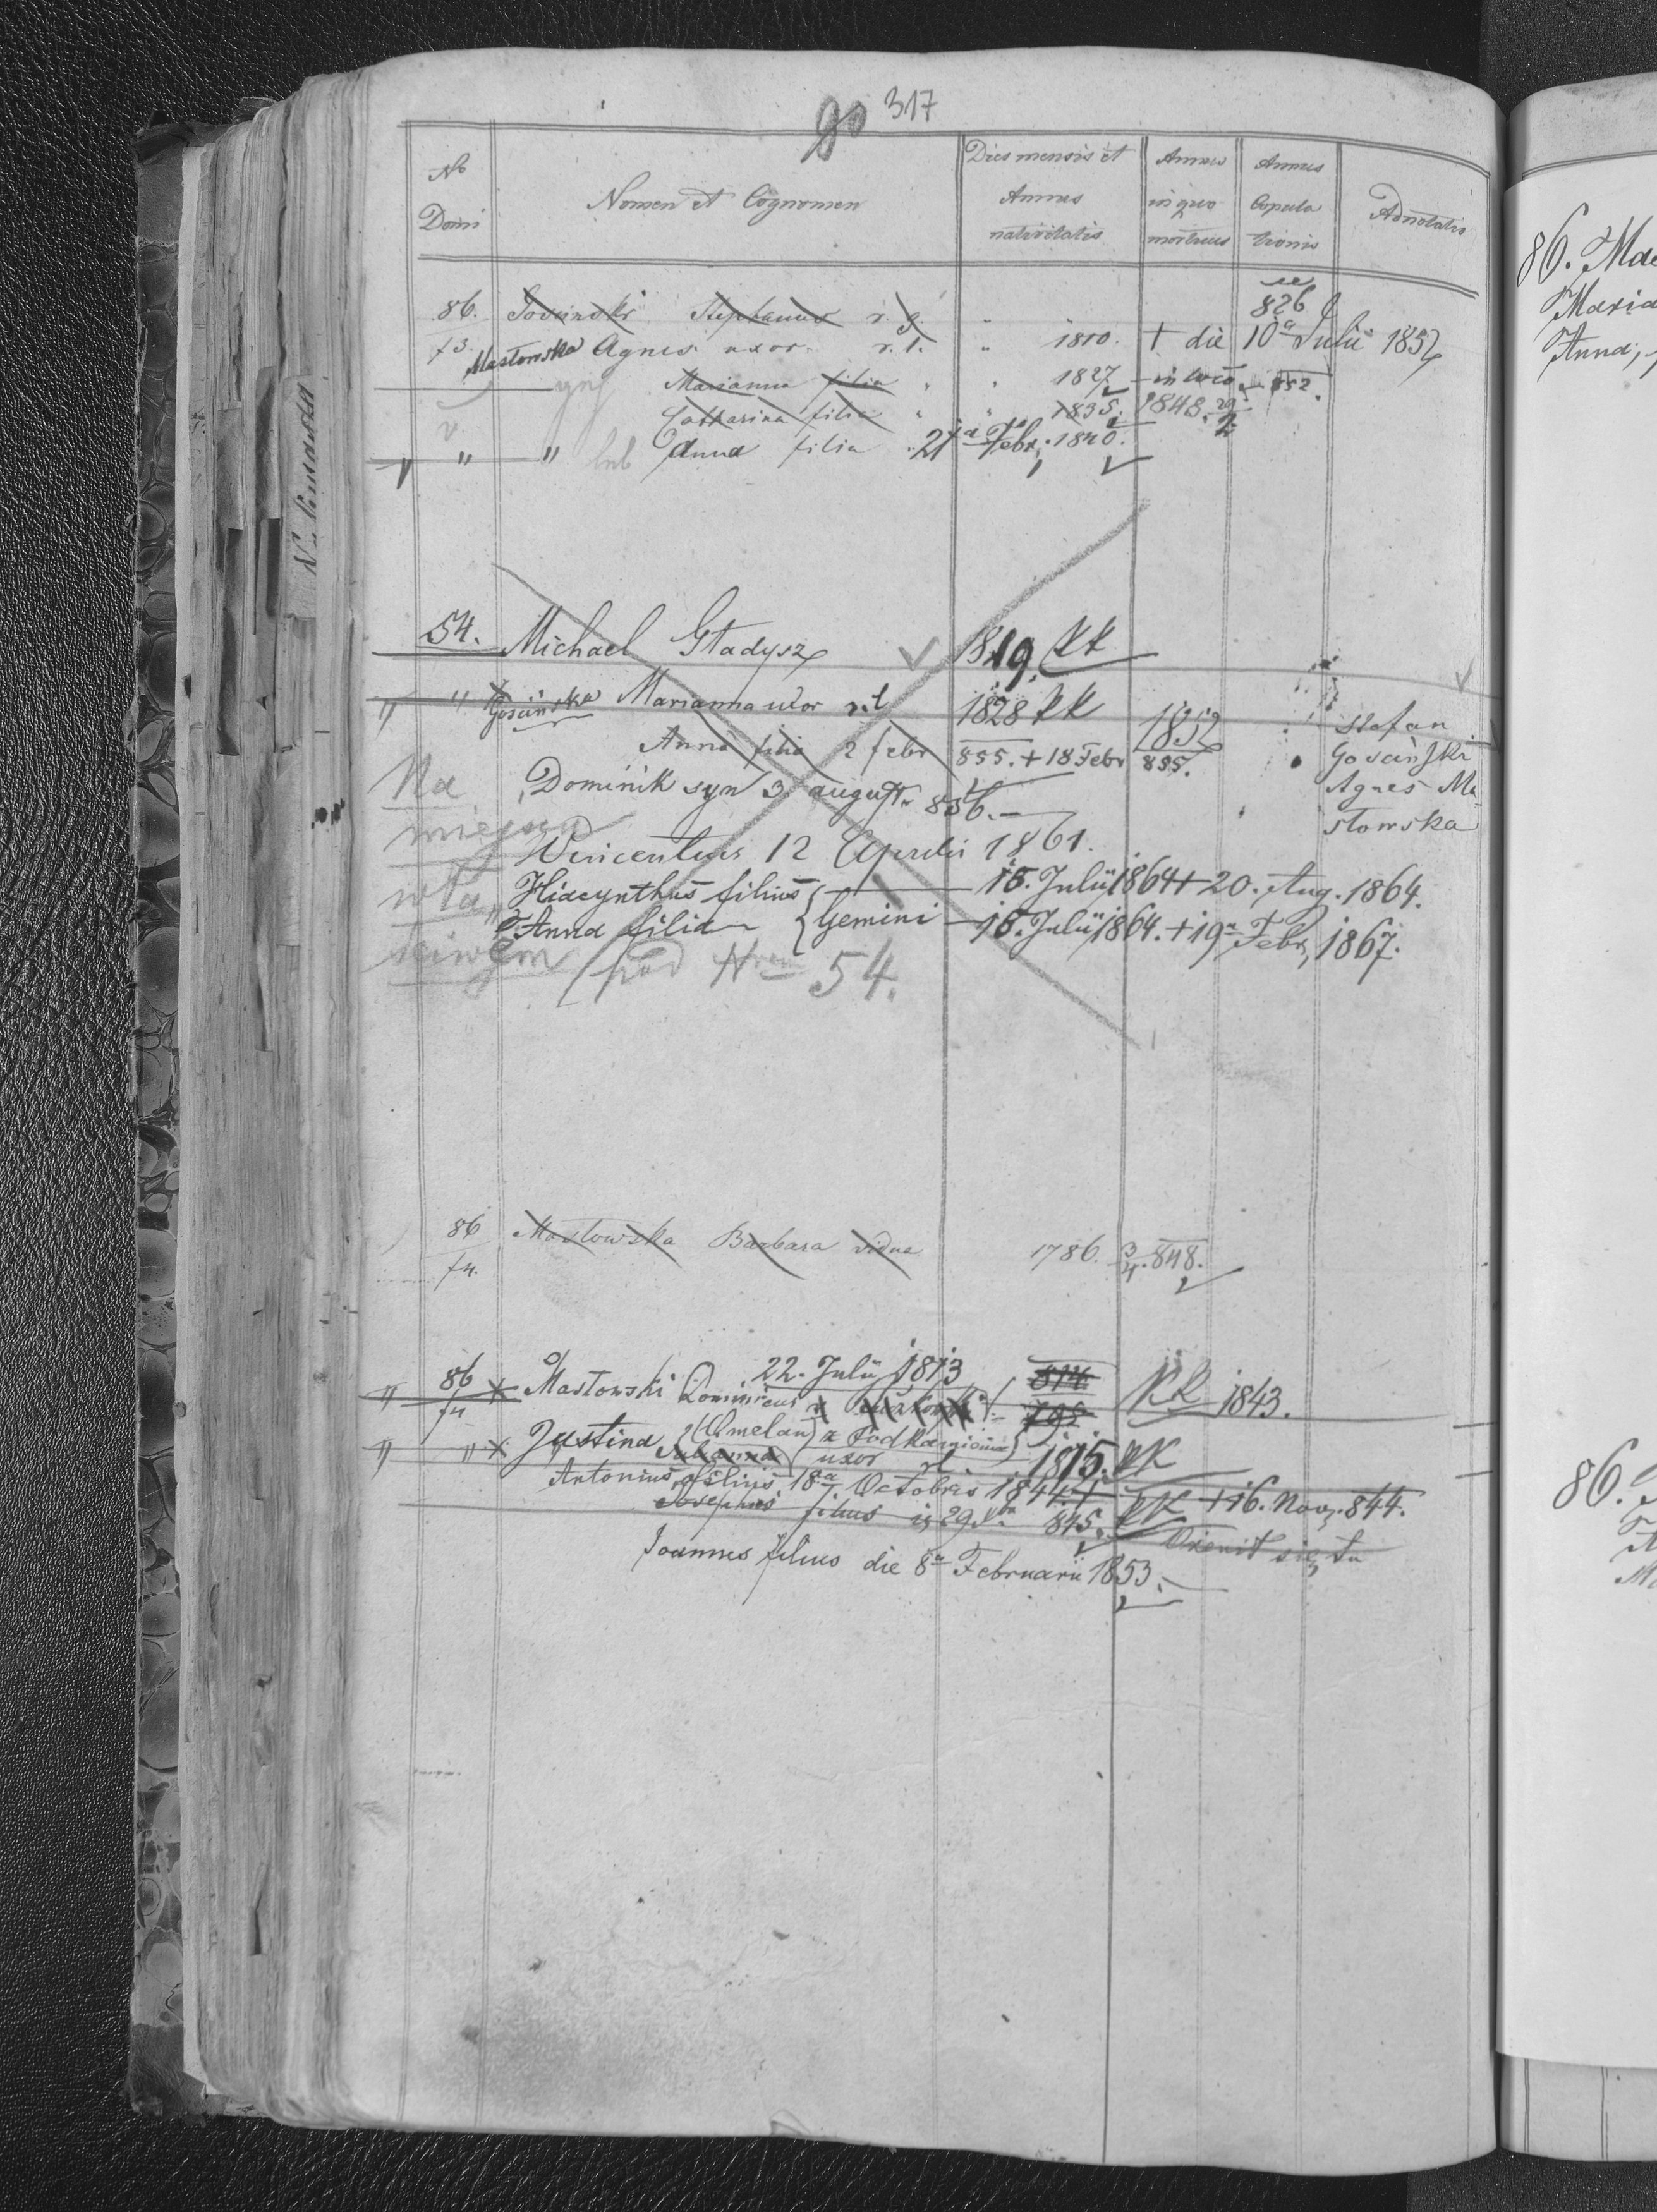 317
90
No Domi
Nomen et Cognomen
Dies mensis et Annus nativitatis
Annus in quo mortuus
Annus Copulationis
Adnotatio
86. Gościnski Stephanus r. g. 826
f3. Masłowska Agnes uxor r. l. " 1810. + die 10a Julii 1852
Marianna filia " " 1827 in loco 852.
v. Catharina filia " " 1835. 1848. 29/2
" " Anna filia 21a Febr. 1840.
54. Michael Gładysz 1819. kk
" " Gościńska Marianna uxor r.l 1828 kk 1852 Stefan
Anna filia 2 febr 855. + 18 Febr 855. Gościński
Dominik syn 3 august 856. Agnes Ma
Na miejscu właściwem słowska
Wincentius 12 Aprilis 1861.
Hiacynthus filius 15. Julii 1864 + 20. Aug. 1864.
Anna filia } Gemini 15. Julii 1864. + 19a Febr. 1867.
pod Nrem 54.
86 Masłowska Barbara vidua 1786. 3/4. 848.
f4.
22. Julii 1813
86 Masłowski Dominicus 814. KK 1843.
f4 795
" " Justina (Chmelan) z Podkamienia
uxor rl 1815. kk
Antonius filius 18a Octobris 1844 + 16. Nov. 844.
Josephus filius 29 845. kk Ożenił się tu
Joannes filius die 8a Februarii 1853.
86. Ma
Maria
Anna,
86.